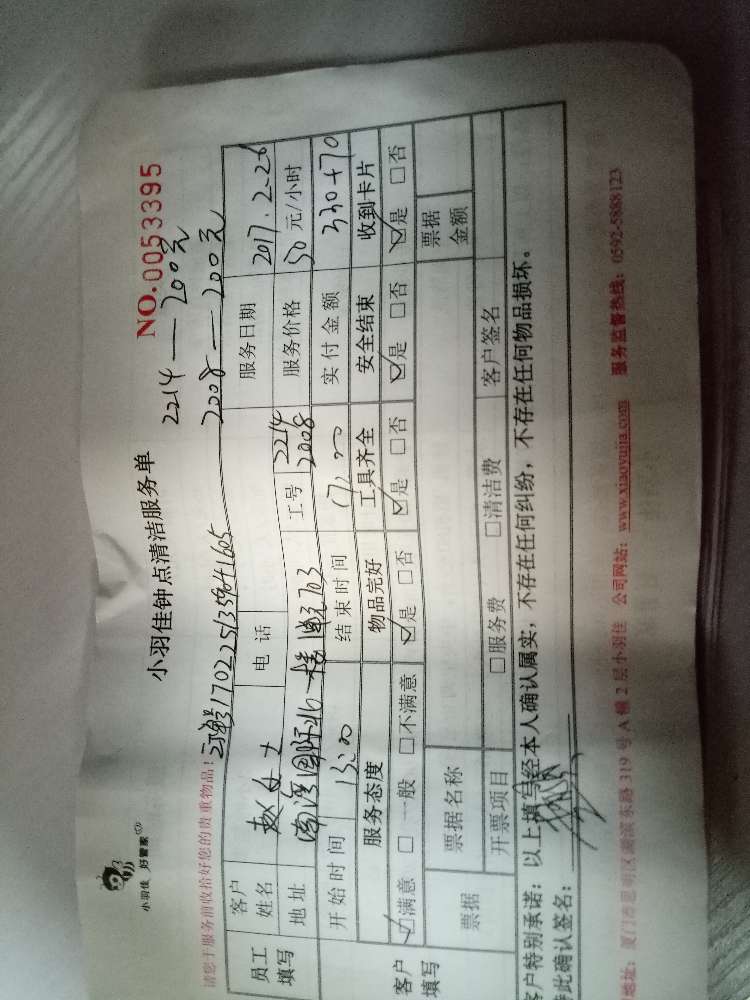 小羽佳 好管家
小羽佳钟点清洁服务单
NO.0053395
2214—200元
2008—200元
请您于服务前收拾好您的贵重物品!
1702251359641605
员工填写
客户姓名 赵女士 电话 服务日期 2017.2.26
地址 国际 703 工号 2214 2008 服务价格 50元/小时
开始时间 13:00 结束时间 17:00 实付金额 330+70
客户填写
服务态度 物品完好 工具齐全 安全结束 收到卡片
☑满意 □一般 □不满意 ☑是 □否 ☑是 □否 ☑是 □否 ☑是 □否
票据 票据名称 票据金额
开票项目 □服务费 □清洁费 客户签名
客户特别承诺:以上填写经本人确认属实,不存在任何纠纷,不存在任何物品损坏。
特此确认签名:
地址:厦门市思明区湖滨东路319号A幢2层小羽佳 公司网站:www.xiaoyujia.com 服务监督热线:0592-5888123